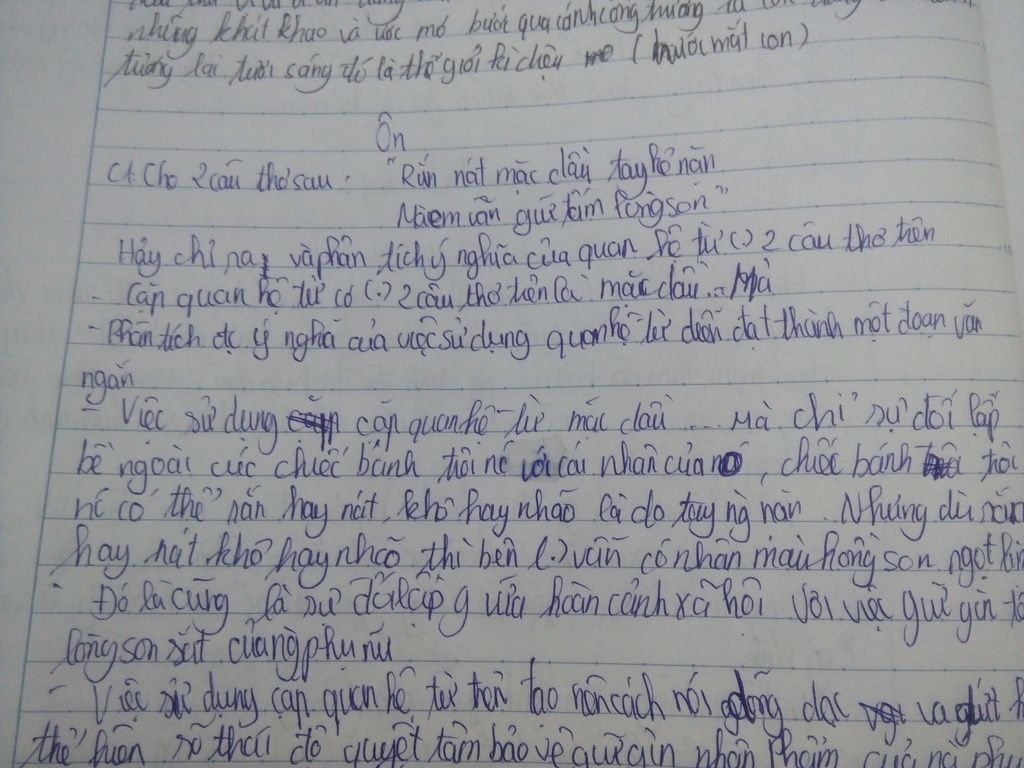 những khát khao và ước mơ bước qua cánh cổng trường là
tương lai tươi sáng đó là thế giới kì diệu (trước mắt con)
Ôn
C1: Cho 2 câu thơ sau: "Rắn nát mặc dầu tay kẻ nặn
Mà em vẫn giữ tấm lòng son"
Hãy chỉ ra và phân tích ý nghĩa của quan hệ từ (.) 2 câu thơ trên
- Cặp quan hệ từ có (.) 2 câu thơ trên là mặc dầu... Mà
- Phân tích đc ý nghĩa của việc sử dụng quan hệ từ diễn đạt thành một đoạn văn
ngắn
- Việc sử dụng cặp quan hệ từ mặc dầu ... mà chỉ sự đối lập
bề ngoài cức chiếc bánh trôi nc với cái nhân của nó, chiếc bánh trôi
nc có thể rắn hay nát, khô hay nhão là do tay ng nặn. Nhưng dù rắn
hay nát khô hay nhão thì bên (.) vẫn có nhân màu hồng son ngọt
Đó là cũng là sự đối lập giữa hoàn cảnh xã hội với việc giữ gìn
lòng son sắt của ng phụ nữ
- Việc sử dụng cặp quan hệ từ trên tạo nên cách nói dõng dạc và
thể hiện rõ thái độ quyết tâm bảo vệ giữ gìn nhân phẩm của ng phụ